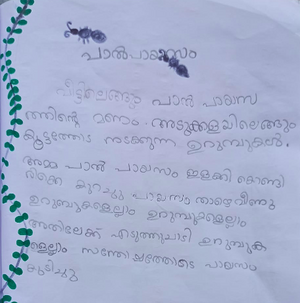 പാൽപായസം
വീട്ടിലെങ്ങും പാൽ പായസ
ത്തിന്റെ മണം. അടുക്കളയിലെങ്ങും
കൂട്ടത്തോടെ നടക്കുന്ന ഉറുമ്പുകൾ.
അമ്മ പാൽ പായസം ഇളക്കി കൊണ്ടി
രിക്കെ കുറച്ചു പായസം താഴെ വീണു
ഉറുമ്പുകളെല്ലാം ഉറുമ്പുകളെല്ലാം
അതിലേക്ക് എടുത്തുചാടി ഉറുമ്പുക
ളെല്ലാം സന്തോഷത്തോടെ പായസം
കുടിച്ചു